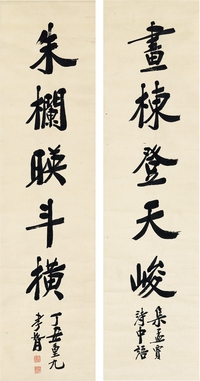 畫棟登天峻
集孟賓
詩中語
朱欄暎斗橫
丁丑皇九
孝胥